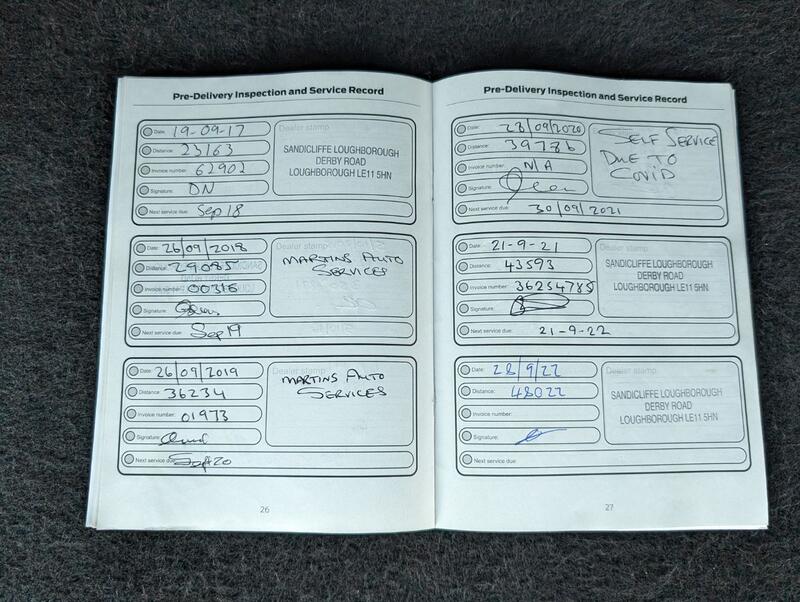 Pre-Delivery Inspection and Service Record
Date: 19-09-17
Distance: 23163
Invoice number: 62902
Signature: DN
Next service due: Sep 18
Dealer stamp
SANDICLIFFE LOUGHBOROUGH
DERBY ROAD
LOUGHBOROUGH LE11 5HN
Date: 26/09/2018
Distance: 29085
Invoice number: 00315
Signature:
Next service due: Sep 19
Dealer stamp
MARTINS AUTO
SERVICES
Date: 26/09/2019
Distance: 36234
Invoice number: 01973
Signature:
Next service due: Sept 20
Dealer stamp
MARTINS AUTO
SERVICES
26
Pre-Delivery Inspection and Service Record
Date: 28/09/2020
Distance: 39786
Invoice number: N/A
Signature:
Next service due: 30/09/2021
Dealer stamp
SELF SERVICE
DUE TO
COVID
Date: 21-9-21
Distance: 43593
Invoice number: 36254785
Signature:
Next service due: 21-9-22
Dealer stamp
SANDICLIFFE LOUGHBOROUGH
DERBY ROAD
LOUGHBOROUGH LE11 5HN
Date: 28/9/22
Distance: 48022
Invoice number:
Signature:
Next service due:
Dealer stamp
SANDICLIFFE LOUGHBOROUGH
DERBY ROAD
LOUGHBOROUGH LE11 5HN
27